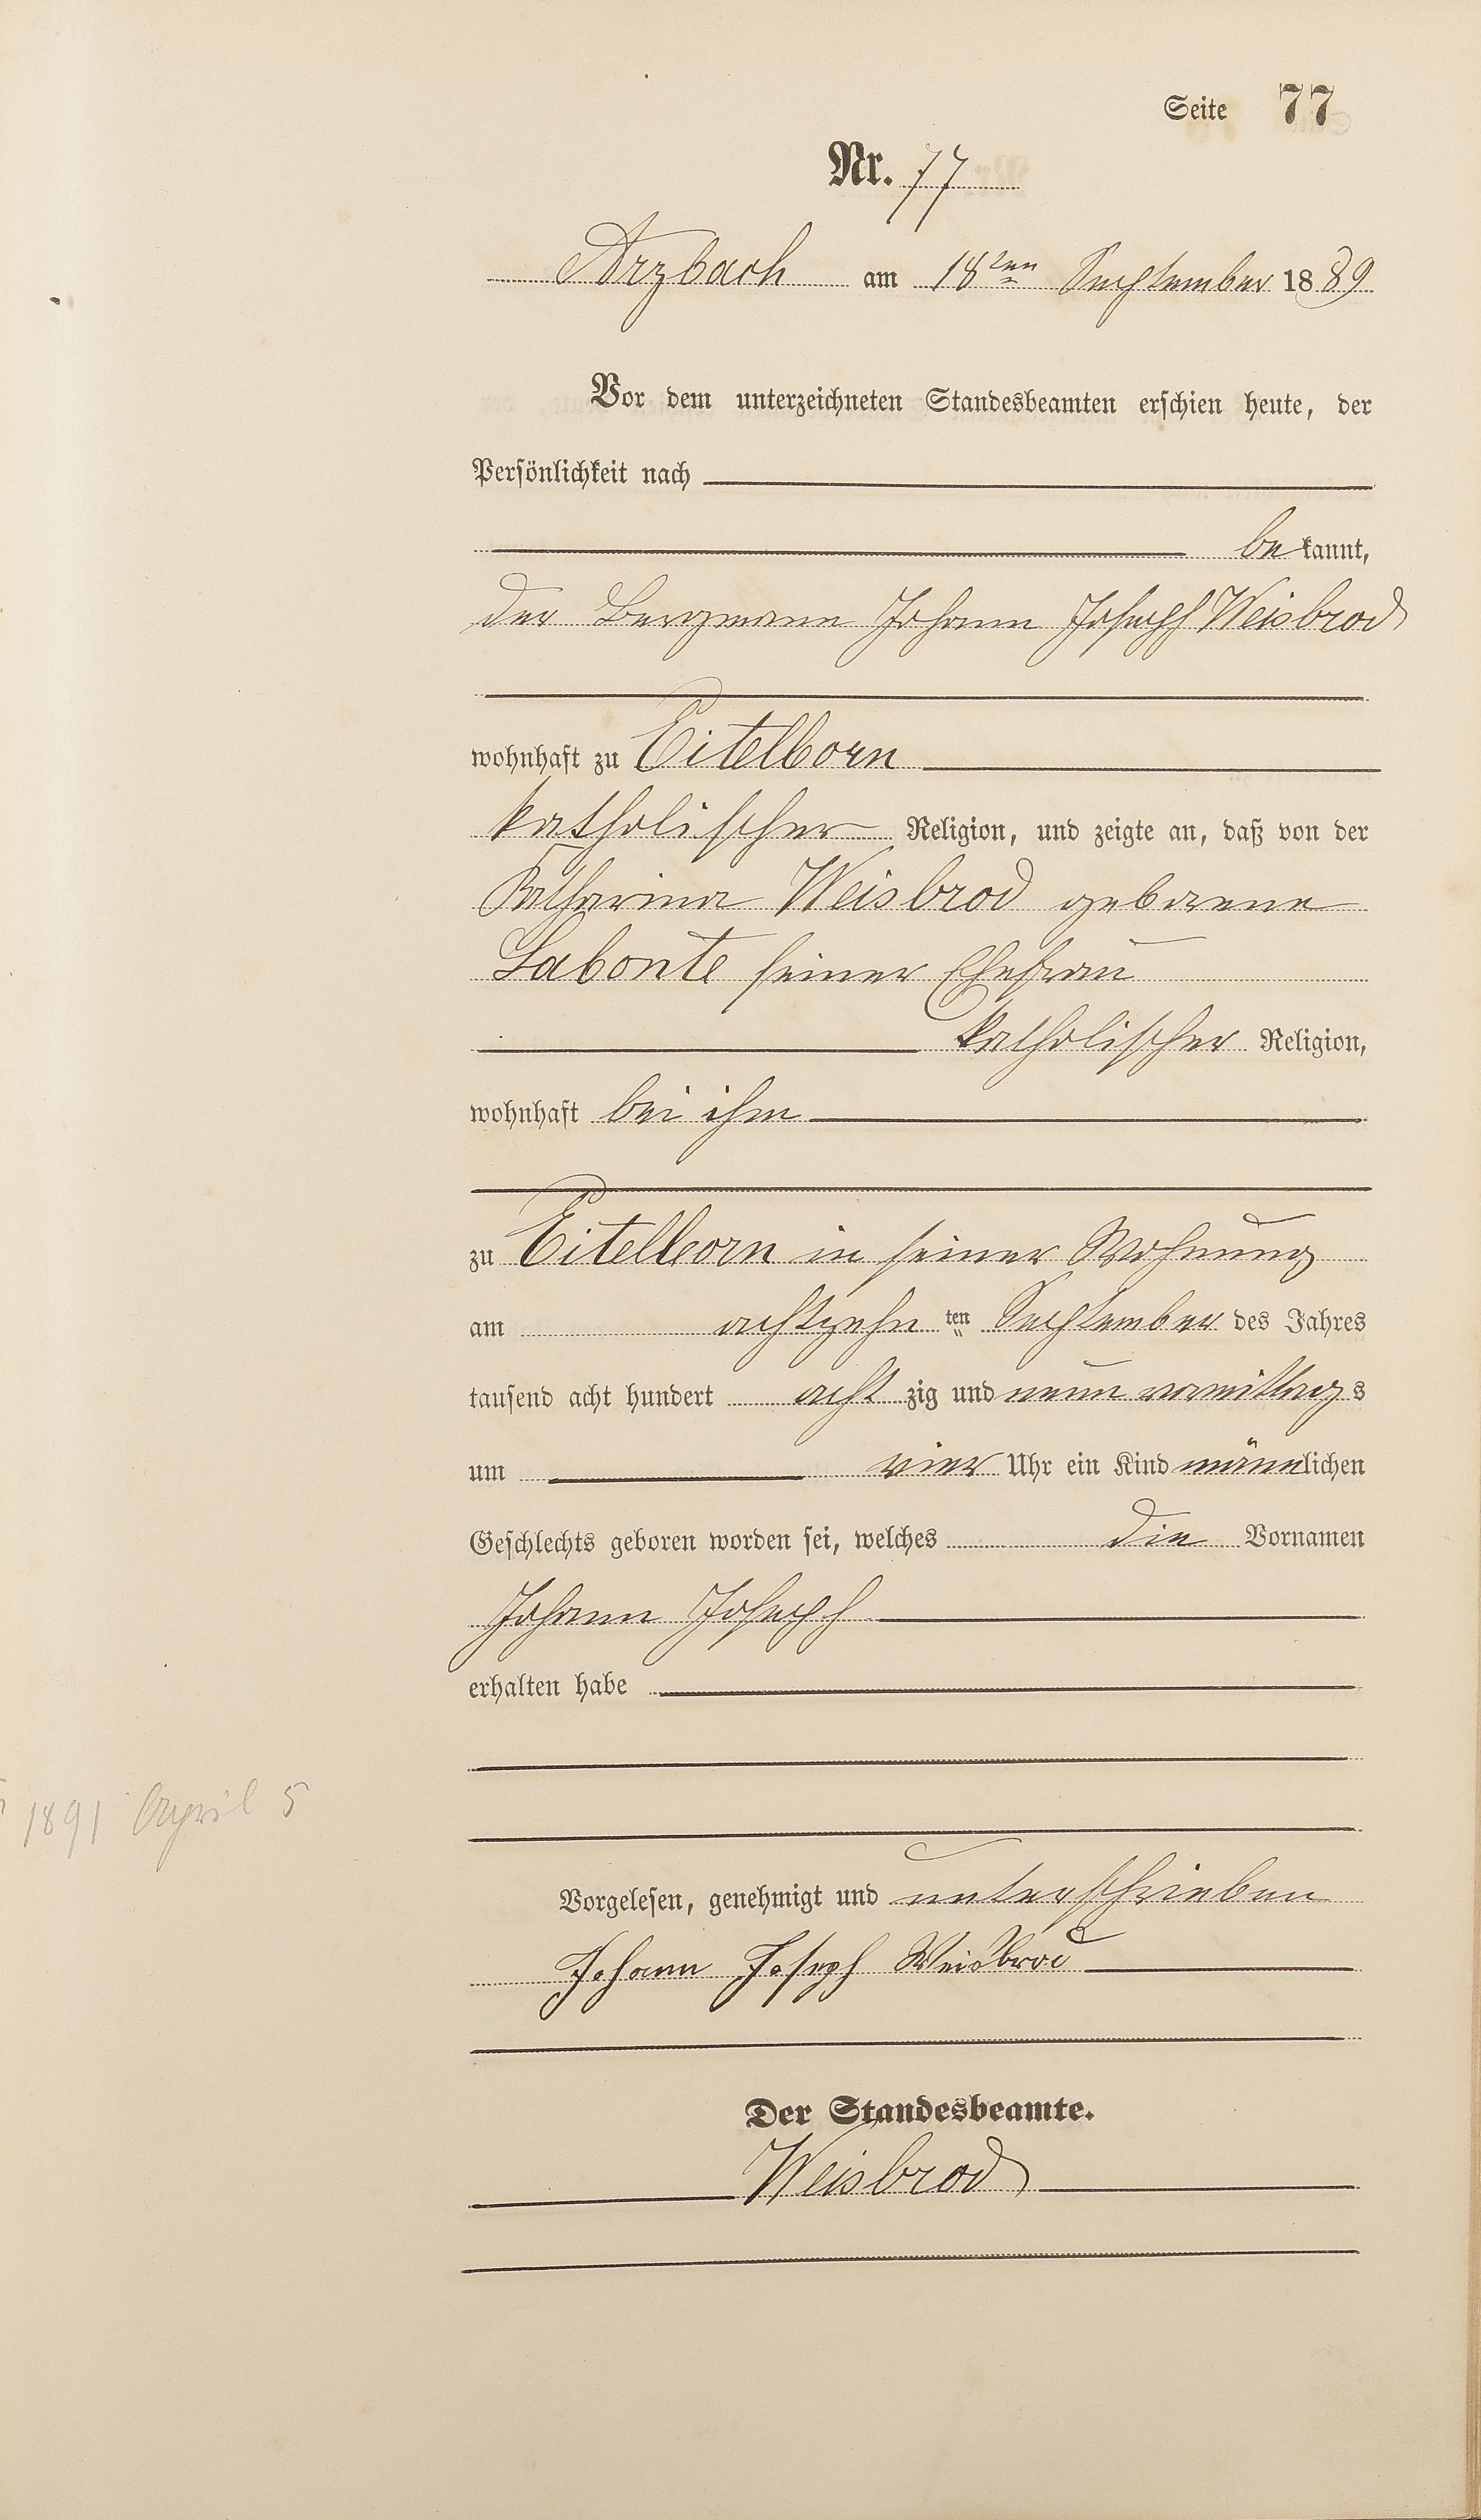 Seite 77
Nr. 77
Arzbach am 18ten September 1889
Vor dem unterzeichneten Standesbeamten erschien heute, der
Persönlichkeit nach
bekannt,
der Bergmann Johann Joseph Weisbrod
wohnhaft zu Eitelborn
katholischer Religion, und zeigte an, daß von der
Katharina Weisbrod geborene
Labonte seiner Ehefrau
katholischer Religion,
wohnhaft bei ihm
zu Eitelborn in seiner Wohnung
am achtzehn ten September des Jahres
tausend acht hundert acht zig und neun vormittags
um vier Uhr ein Kind männlichen
Geschlechts geboren worden sei, welches die Vornamen
Johann Joseph
erhalten habe
1891 April 5
Vorgelesen, genehmigt und unterschrieben
Johann Joseph Weisbrod
Der Standesbeamte.
Weisbrod